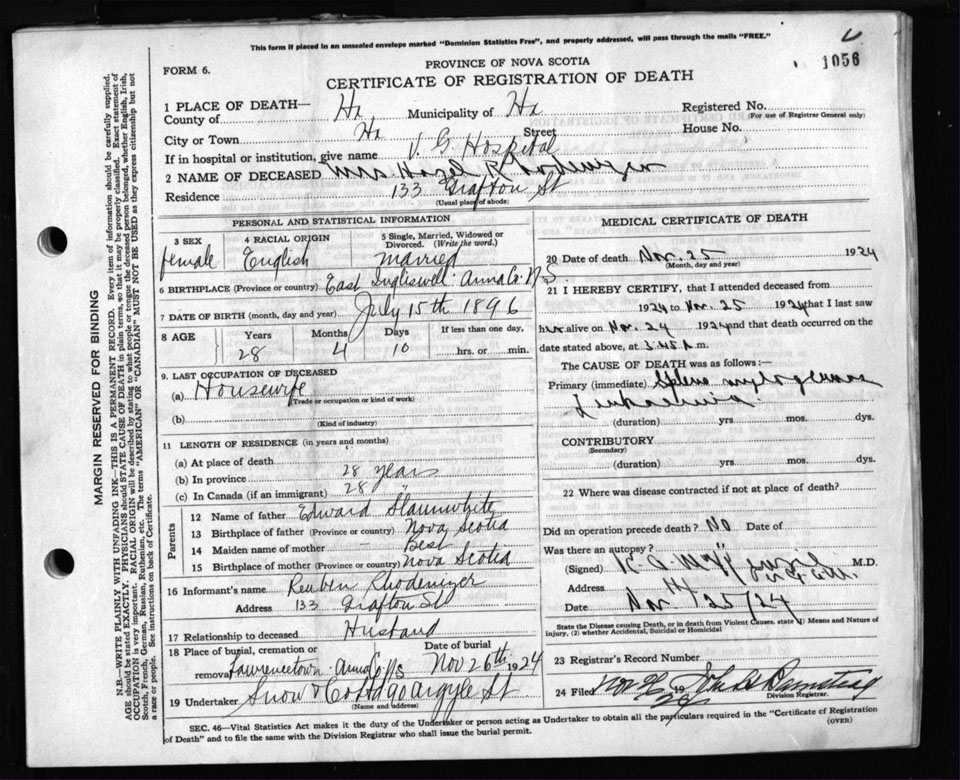 This form if placed in an unsealed envelope marked "Dominion Statistics Free", and properly addressed, will pass through the mails "FREE."
1056
PROVINCE OF NOVA SCOTIA
FORM 6.
CERTIFICATE OF REGISTRATION OF DEATH
1 PLACE OF DEATH—
County of Hx Municipality of Hx Registered No.
(For use of Registrar General only)
City or Town Hx Street House No.
If in hospital or institution, give name V. G. Hospital
2 NAME OF DECEASED Mrs Hazel Rhodenizer
Residence 133 Grafton St
(Usual place of abode)
PERSONAL AND STATISTICAL INFORMATION
3 SEX 4 RACIAL ORIGIN 5 Single, Married, Widowed or Divorced. (Write the word.)
female English married
6 BIRTHPLACE (Province or country) East Ingliswell Anna Co. N S.
7 DATE OF BIRTH (month, day and year) July 15th 1896
8 AGE Years Months Days If less than one day,
28 4 10 hrs. or min.
9. LAST OCCUPATION OF DECEASED
(a) Housewife
(Trade or occupation or kind of work)
(b)
(Kind of industry)
11 LENGTH OF RESIDENCE (in years and months)
(a) At place of death
(b) In province 28 years
(c) In Canada (if an immigrant) 28 "
Parents
12 Name of father Edward Slaunwhite
13 Birthplace of father (Province or country) Nova Scotia
14 Maiden name of mother Best
15 Birthplace of mother (Province or country) Nova Scotia
16 Informant's name Reuben Rhodenizer
Address 133 Grafton St
17 Relationship to deceased Husband
18 Place of burial, cremation or removal Date of burial
Lawrencetown Anna Co NS Nov 26th 1924
19 Undertaker Snow & Co Ltd 90 Argyle St
(Name and address)
MEDICAL CERTIFICATE OF DEATH
20 Date of death Nov. 25 1924
(Month, day and year)
21 I HEREBY CERTIFY, that I attended deceased from
1924 to Nov. 25 1924 that I last saw
her alive on Nov. 24 1924 and that death occurred on the
date stated above, at 3.45 A m.
The CAUSE OF DEATH was as follows:—
Primary (immediate) Spleno myelogenous
Leukaemia
(duration) yrs. mos. dys.
CONTRIBUTORY
(Secondary)
(duration) yrs. mos. dys.
22 Where was disease contracted if not at place of death?
Did an operation precede death? No Date of
Was there an autopsy?
(Signed) M.D.
Address
Date Nov 25/24
State the Disease causing Death, or in death from Violent Causes, state (1) Means and Nature of
Injury, (2) whether Accidental, Suicidal or Homicidal
23 Registrar's Record Number
24 Filed 19
Division Registrar.
SEC. 46—Vital Statistics Act makes it the duty of the Undertaker or person acting as Undertaker to obtain all the particulars required in the "Certificate of Registration
of Death" and to file the same with the Division Registrar who shall issue the burial permit.
(OVER)
MARGIN RESERVED FOR BINDING
N.B.—WRITE PLAINLY WITH UNFADING INK—THIS IS A PERMANENT RECORD. Every item of information should be carefully supplied.
AGE should be stated EXACTLY. PHYSICIANS should STATE CAUSE OF DEATH in plain terms, so that it may be properly classified. Exact statement of
OCCUPATION is very important. RACIAL ORIGIN will be described by stating to what people or tongue the deceased person belonged, whether English, Irish,
Scotch, French, German, Russian, Ruthenian, etc. The terms "AMERICAN" OR "CANADIAN" MUST NOT BE USED as they express citizenship but not
a race or people. See instructions on back of Certificate.